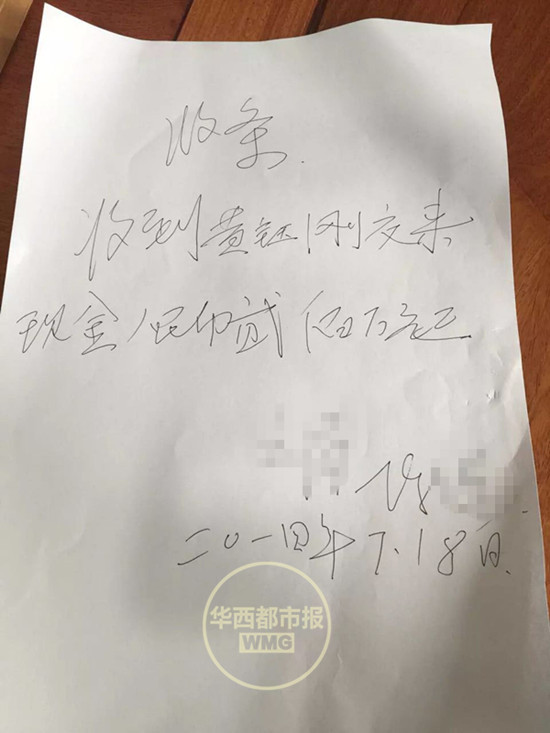 收条
收到黄钰刚交来
现金人民币贰佰万元
二〇一四年7.18日
华西都市报
WMG